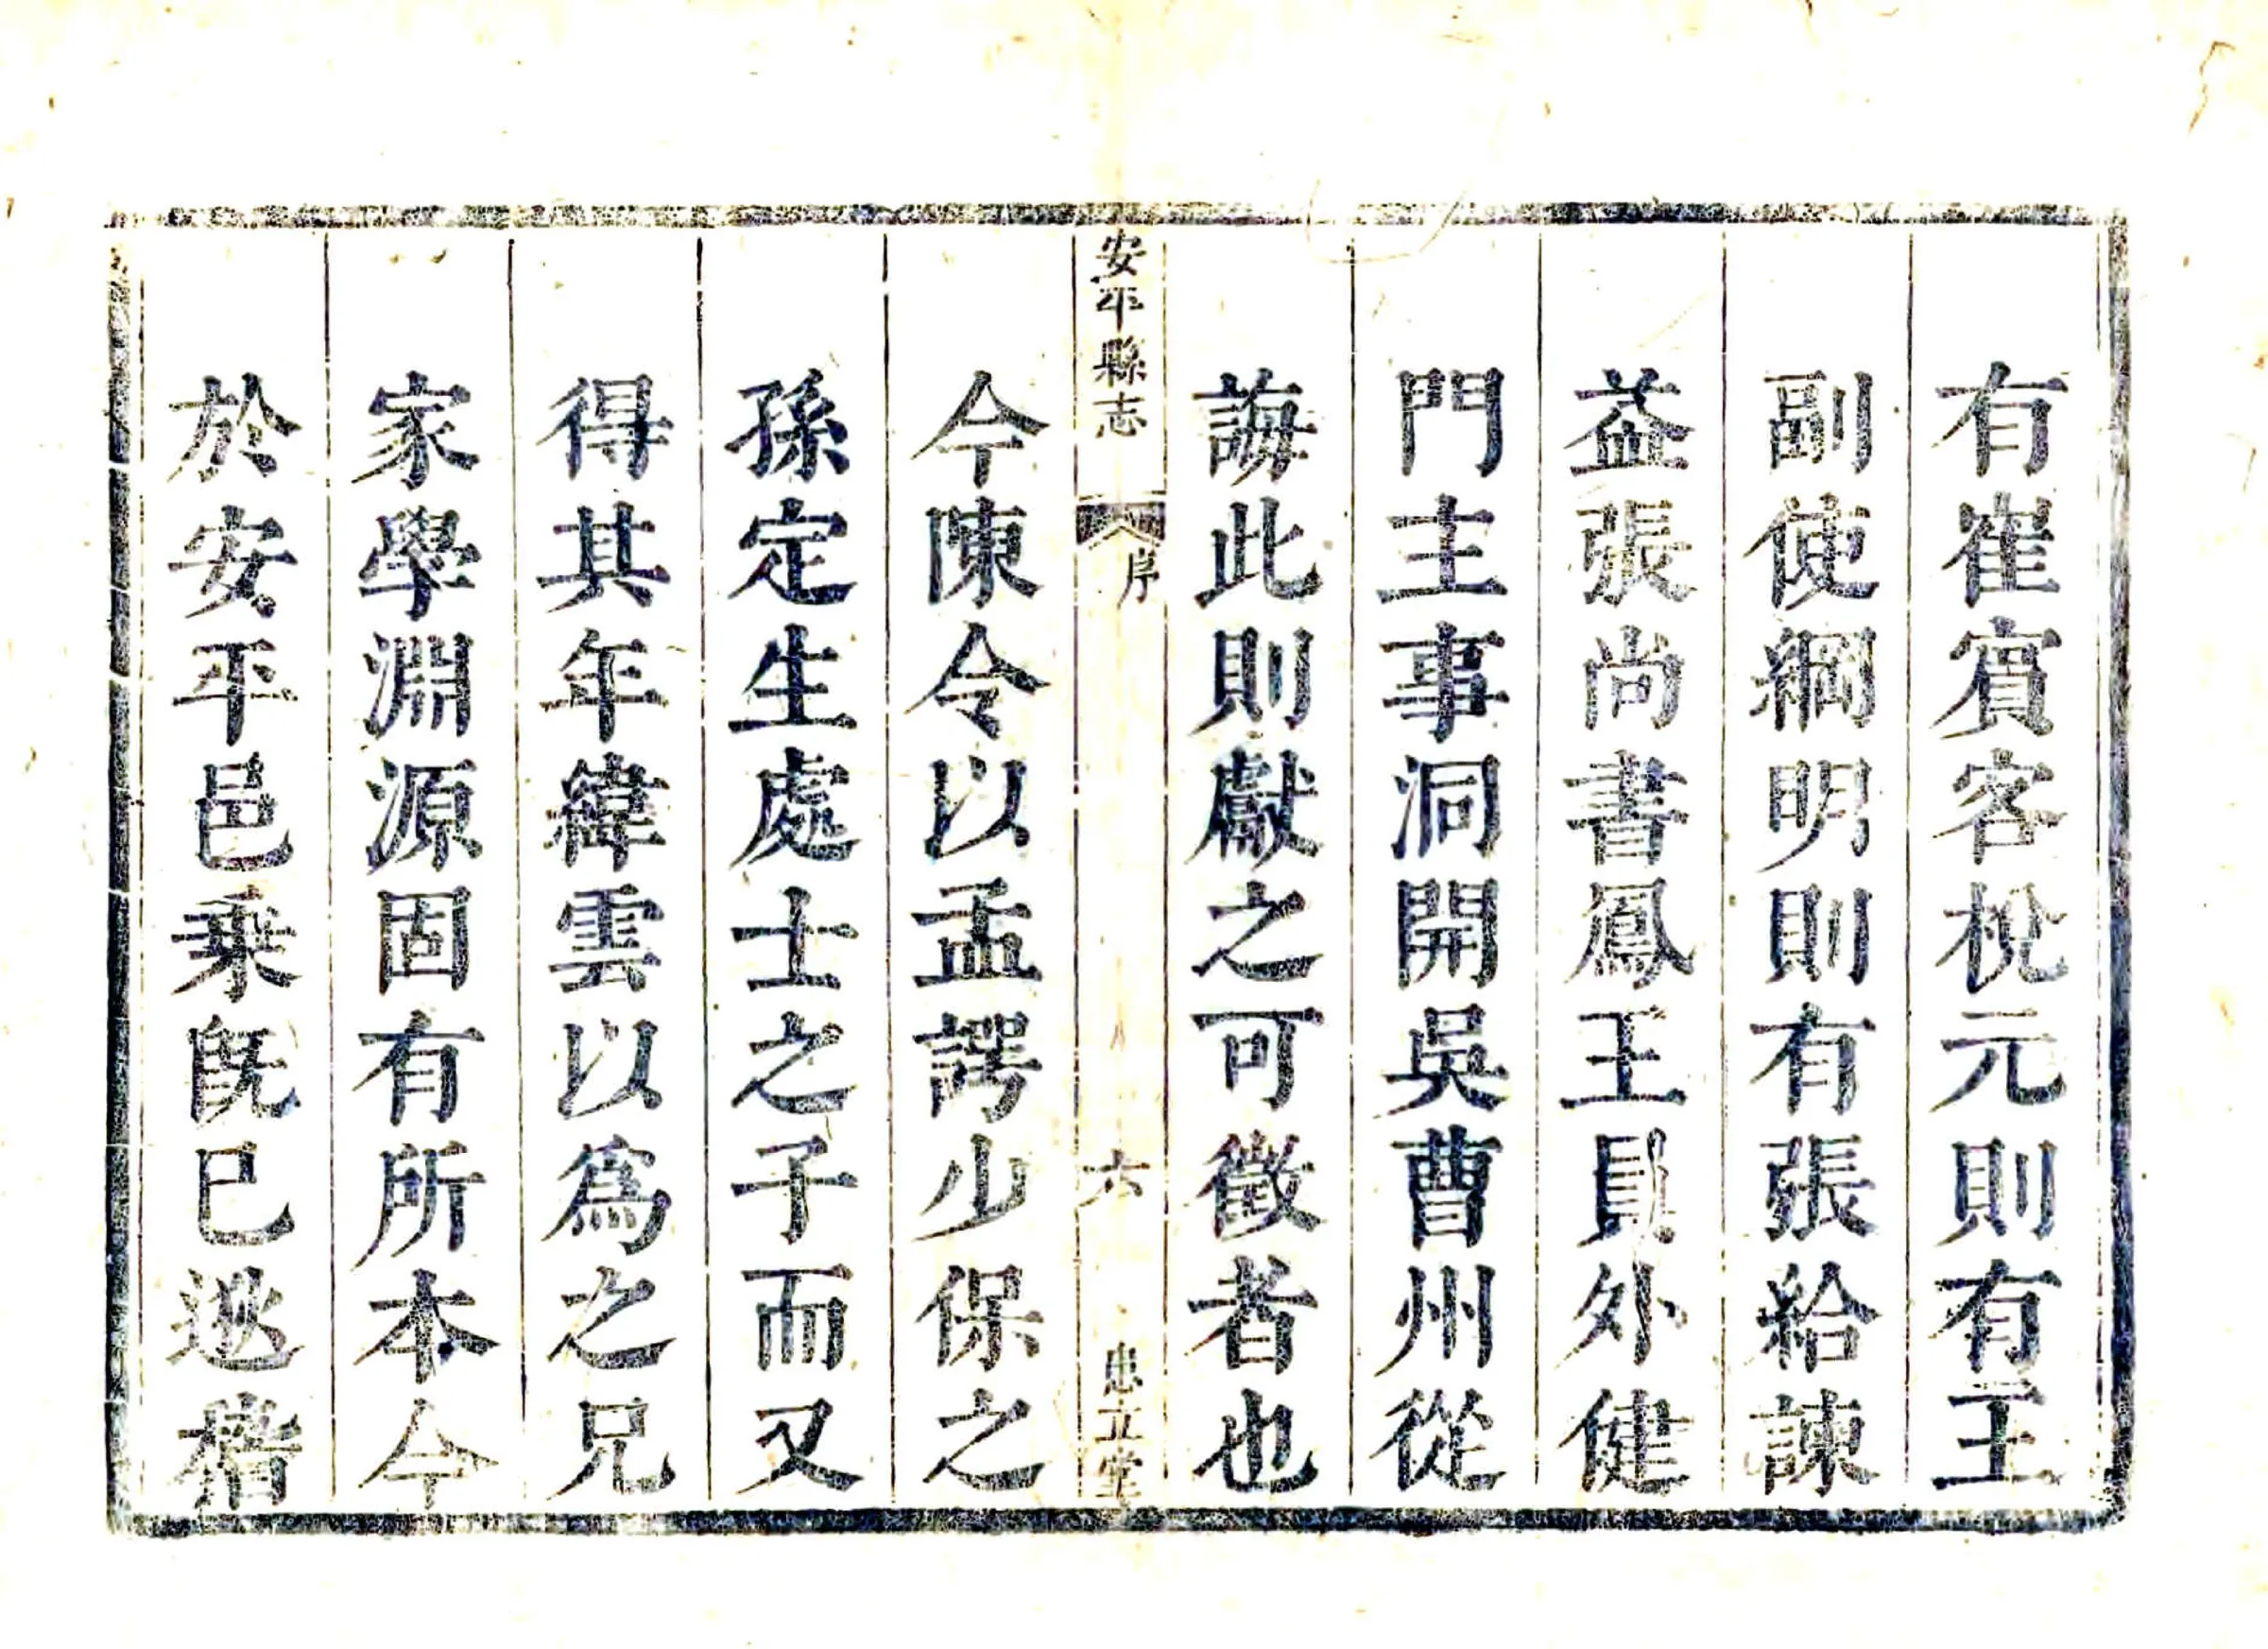 有崔賓客梲元則有王
副使綱明則有張給諫
益張尚書鳳王員外健
門主事洞開吳曹州從
誨此則獻之可徵者也
安平縣志
序
六
忠立堂
今陳令以孟諤少保之
孫定生處士之子而又
得其年緯雲以爲之兄
家學淵源固有所本今
於安平邑乗旣已遜稽